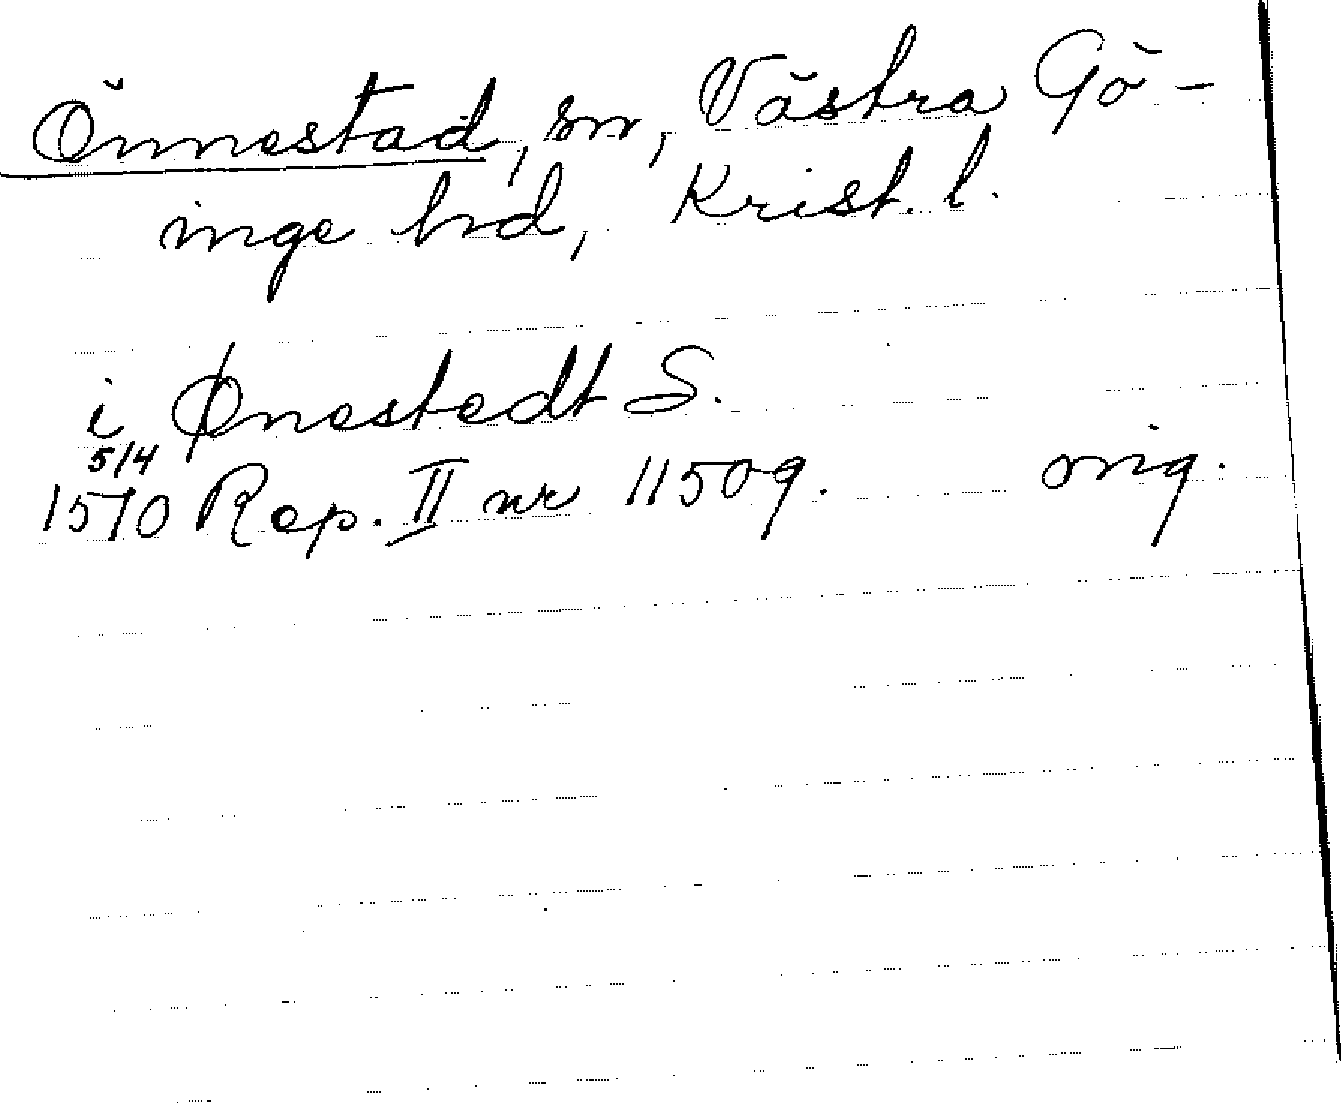 Önnestad, sn, Västra Gö-
inge hd, Krist. l.
i Ønestedt S.
5/4
1570 Rep. II nr 11509. orig.